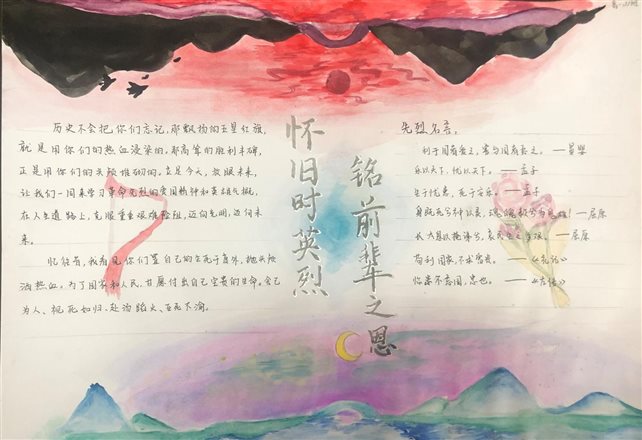 历史不会把你们忘记,那飘扬的五星红旗,
就是用你们的热血浸染的,那高耸的胜利丰碑,
正是用你们的头颅堆砌的。立足今天,放眼未来,
让我们一同来学习革命先烈的爱国精神和英雄气概,
在人生道路上,克服重重艰难险阻,迈向光明,迈向未
来。
忆往昔,我看见你们置自己的生死于度外,抛头颅
洒热血,为了国家和人民,甘愿付出自己宝贵的生命。舍己
为人、视死如归、赴汤蹈火、至死不渝。
怀旧时英烈
铭前辈之恩
先烈名言。
利于国者爱之,害于国者恶之。——晏婴
乐以天下,忧以天下。——孟子
生于忧患,死于安乐。——孟子
身既死兮神以灵,魂魄毅兮为鬼雄!——屈原
长太息以掩涕兮,哀民生之多艰。——屈原
苟利国家,不求富贵。——《礼记》
临患不忘国,忠也。——《左传》